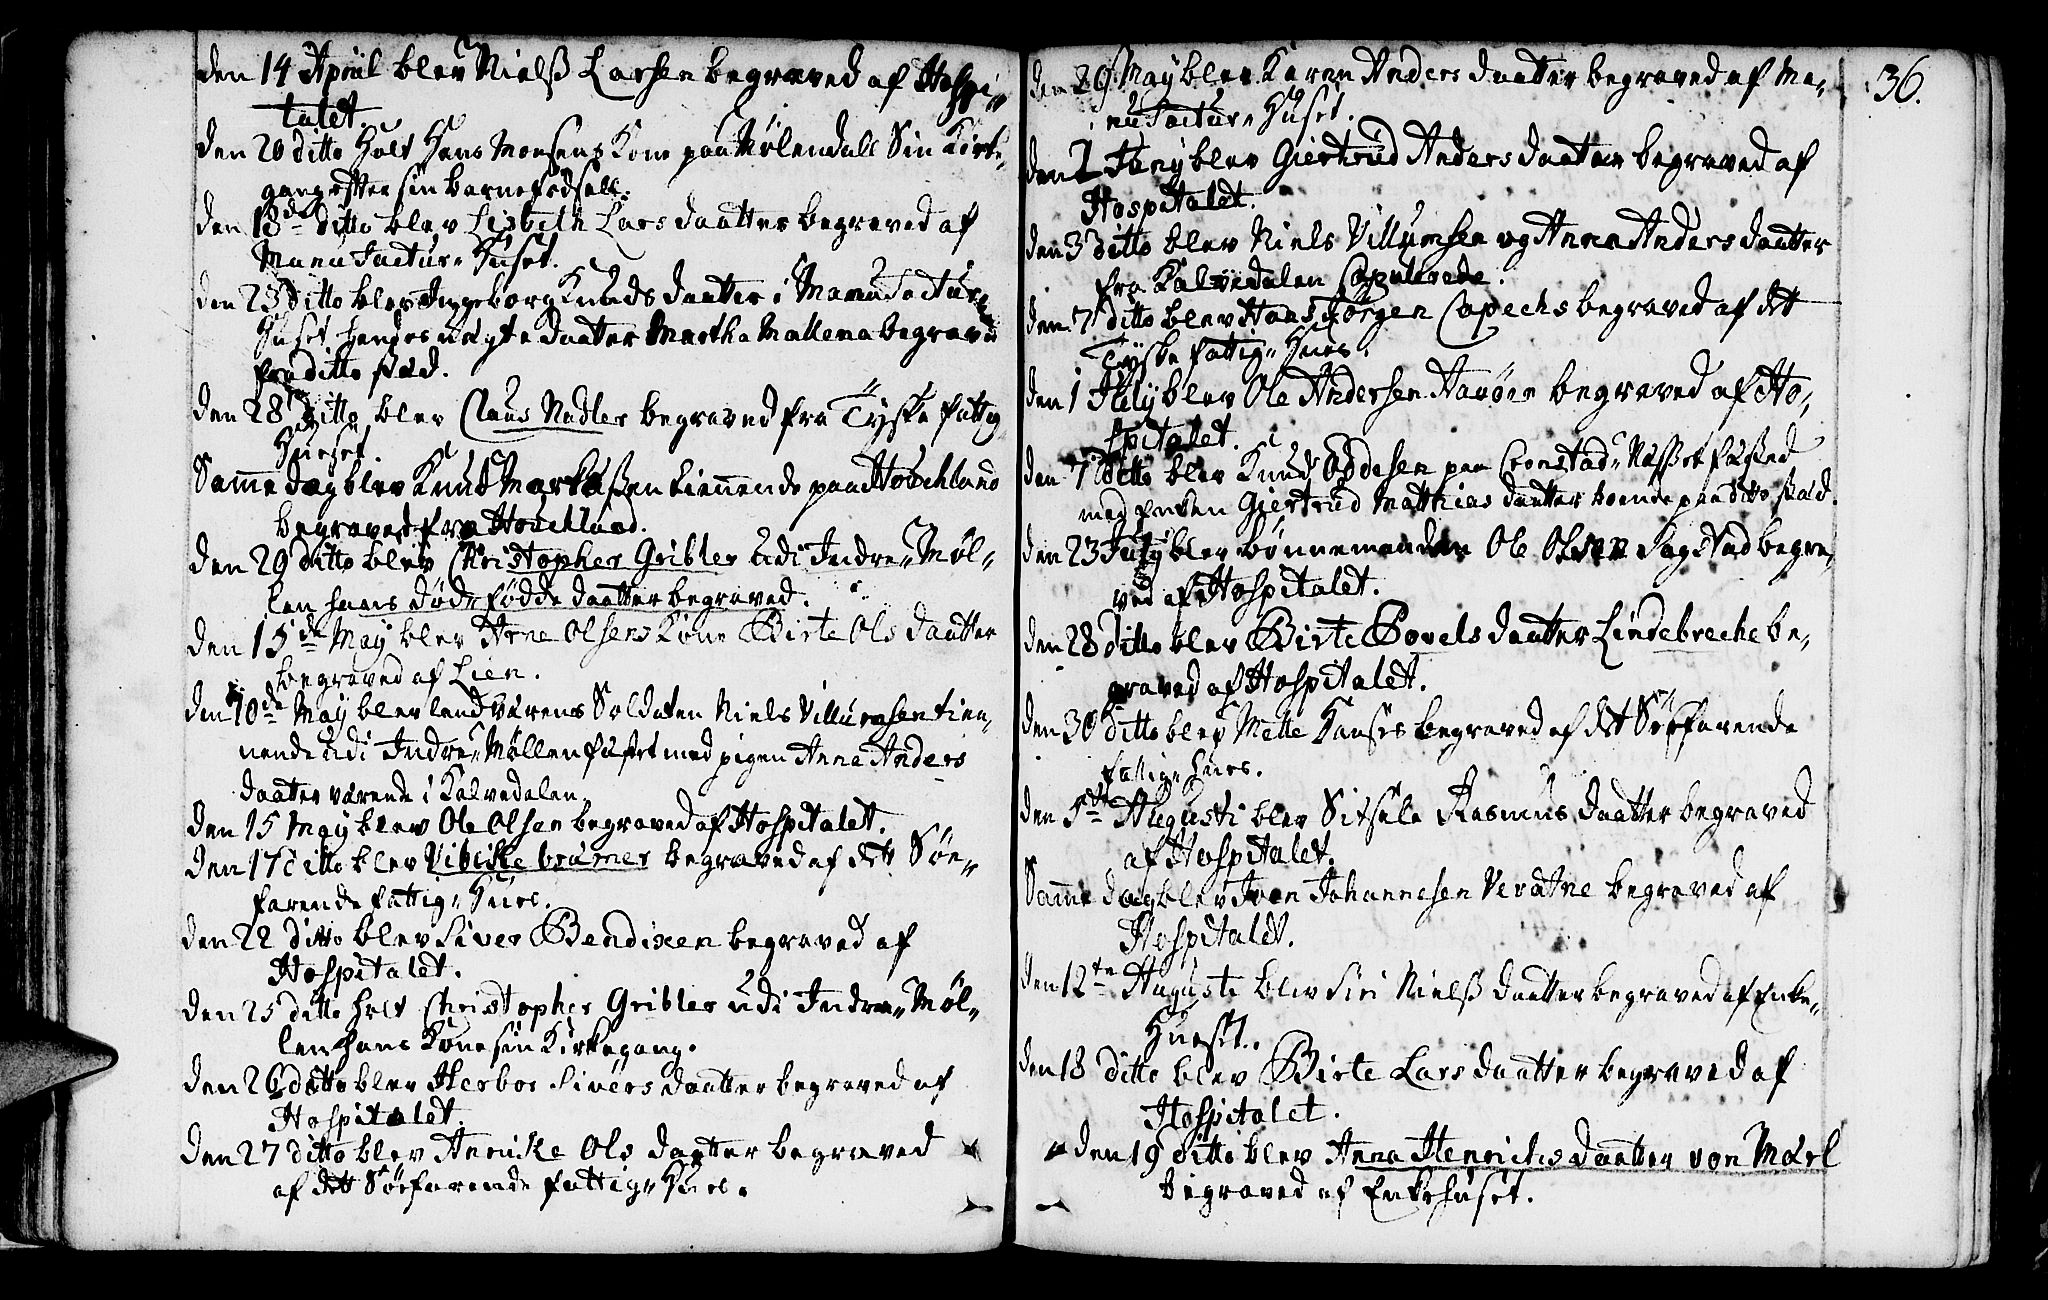 den 14 Apriil blev Nielß Larsen begraved af Hospi„
talet.
den 20 ditto Holt Hans Monsens Kone paa Mølendall Sin Kirke„
gang efter sin barnefødsell.
den 18de ditto blev Lisbeth Lars daatter begraved af
Manufactur„ Huset.
den 23 ditto blev Ingeborg Knuds daatter i Manufactur„
Huset hendes uægte daatter Martha Mallena begraved
fra ditto stæd.
den 28 ditto blev Claus Nadler begraved fra Tyske fattig
Hueset.
Samme dag blev Knud Markußen tiennende paa Houchland
begraved fra Houchland.
den 29 ditto blev Christopher Gribler udi Indre„ Møl„
len hans død„ fødde daatter begraved.
den 15de May blev Arne Olsens Kone Birte Ols daatter
begraved af Lien.
den 10de May blev landværens Soldaten Niels Villumsen tien„
nende udi Indre„ Møllen fæstet med pigen Anna Anders
daatter værende i Kalvedalen
den 15 May blev Ole Olsen begraved af Hospitalet.
den 17 ditto blev Vibicke brumer begraved af dett Søe„
farende fattig„ Hues.
den 22 ditto blev Siver Bendixen begraved af
Hospitalet.
den 25 ditto holt Christopher Gribler udi Indre„ Møl„
len hans Kone sin Kirkegang.
den 26 ditto blev Herbor Sivers daatter begraved af
Hospitalet.
den 27 ditto blev Annike Ols daatter begraved
af dett Søefarende fattig„ Hues.
36.
den 29 May blev Karen Anders daatter begraved af Ma„
nufactur„ Huset.
den 2 Juny blev Giertrud Anders daatter begraved af
Hospitalet.
den 3 ditto blev Niels Villumsen og Anna Anders daatter
fra Kalvedalen Copulerede.
den 7 ditto blev Hans Jörgen Capechs begraved af dett
Tyske fattig„ Hues.
den 1 July blev Ole Andersen Havöen begraved af Ho„
spitalet.
den 7 ditto blev Knud Oddesen paa Cronstad„ Næsset fæsted
med enken Giertrud Matthias daatter boende paa ditto stæd.
den 23 July blev bønnemanden Ole Olsen Sagstad begra„
ved af Hospitalet.
den 28 ditto blev Birte Povels daatter Lindebreche be„
graved af Hospitalet.
den 30 ditto blev Mette Hanses begraved af dett Søefarende
fattig„ hues.
den 5te Augusti blev Sitsele Rasmus daatter begraved
af Hospitalet.
Samme dag blev Iven Johannesen Veratne begraved af
Hospitalet.
den 12te Auguste blev Siri Nielß daatter begraved af Enke„
Hueset.
den 18 ditto blev Birte Lars daatter begraved af
Hospitalet.
den 19 ditto blev Anna Henrichs daatter von Marl
begraved af Enkehuset.